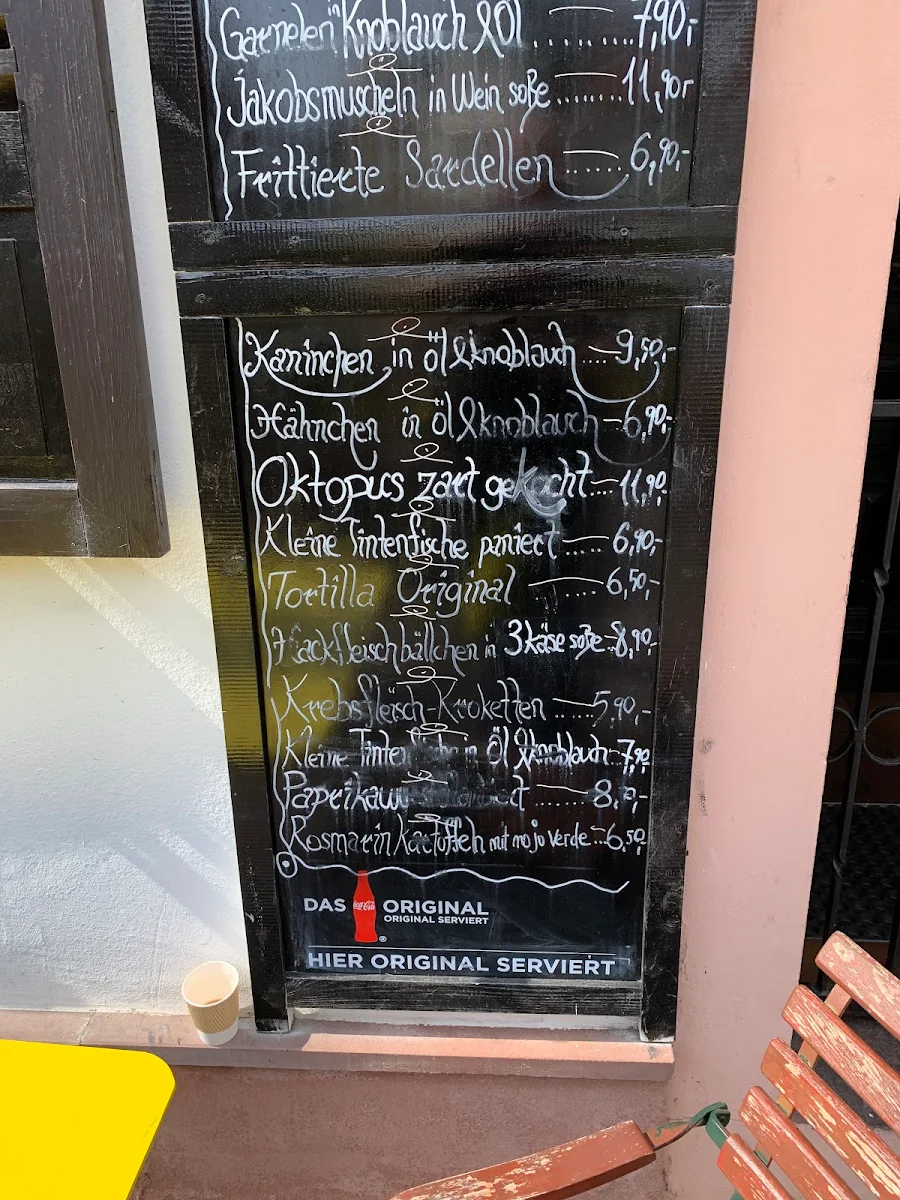 Garnelen Knoblauch & Öl ........ 7,90,-
Jakobsmuscheln in Wein soße ....... 11,90,-
Frittierte Sardellen ...... 6,90,-
Kaninchen in öl & knoblauch ..... 9,50,-
Hähnchen in öl & knoblauch 6,90,-
Oktopus zart gekocht .... 11,90
Kleine Tintenfische paniert ..... 6,90,-
Tortilla Original ...... 6,50,-
Hackfleischbällchen in 3 käse soße 8,90,-
Krebsfleisch-Kroketten ..... 5,90,-
Kleine in Öl & knoblauch 7,90
....... 8,
Rosmarin Kartoffeln mit mojo verde ... 6,50
DAS Coca-Cola ORIGINAL
ORIGINAL SERVIERT
HIER ORIGINAL SERVIERT